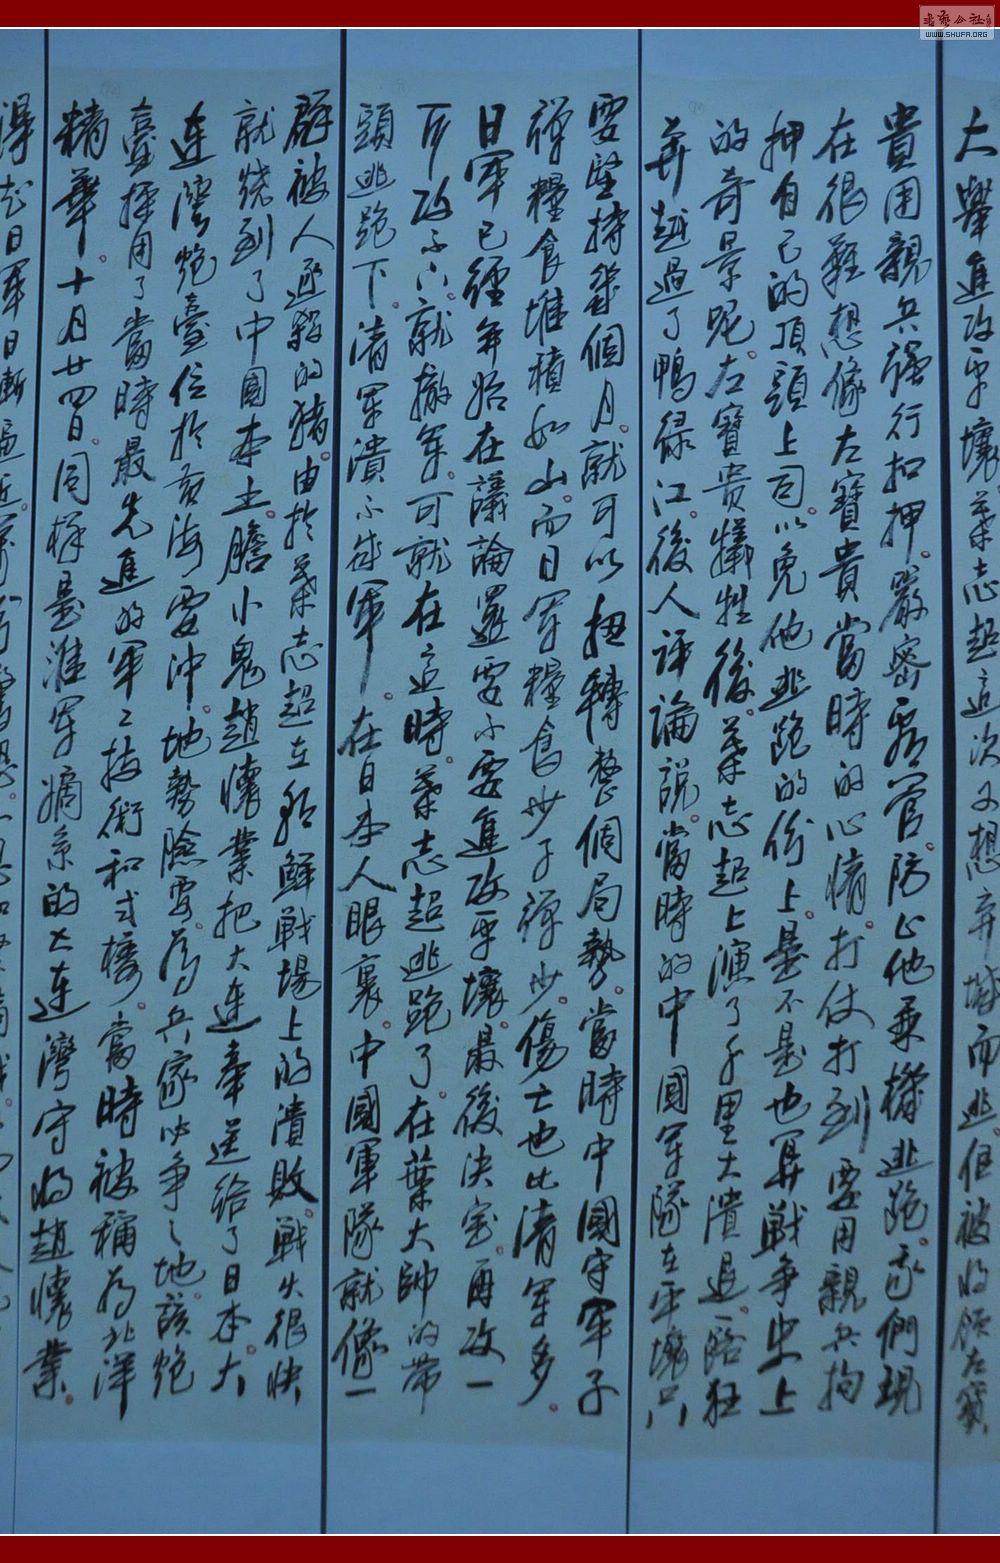 大舉進攻平壤葉志超這次又想弃城而逃。但被將領左寶
貴用親兵强行扣押。嚴密看管。防止他乘機逃跑。我們現
在很難想像左寶貴當時的心情。打仗打到要用親兵拘
押自己的頂頭上司。以免他逃跑的份上。是不是也算戰争史上
的奇景呢。左寶贵犧牲後。葉志超上演了千里大潰退。一路狂
奔越過了鴨緑江。後人评論說。當時的中國軍隊在平壤只
要堅持幾個月。就可以扭轉整個局勢。當時中國守軍子
彈糧食堆積如山。而日軍糧食少子彈少。傷亡也比清軍多。
日軍已經開始在議論還要不要進攻平壤。最後決定再攻一
下。攻不下就撤軍。可就在這時葉志超逃跑了。在葉大帥的带
頭逃跑下。清軍潰不成軍。在日本人眼裏。中國軍隊就像一
群被人逐殺的猪。由於葉志超在朝鮮戰場上的潰敗。戰火很快
就烧到了中國本土。膽小鬼趙懷業把大連奉送給了日本。大
連灣炮臺位於黄海要冲。地勢險要。為兵家必争之地。該炮
臺採用了當時最先進的軍工技術和式樣。當時被稱為北洋
精華。十月廿四日。同樣是淮軍嫡系的大連灣守將趙懷業。
得知日軍日漸逼近
WWW.SHUFA.ORG